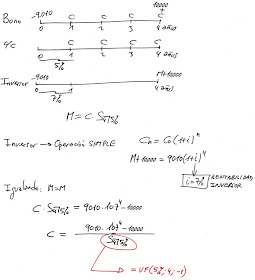 10000
Bono -9010 C C C C
0 1 2 3 4 años
C C C C
0 1 2 3 4 años
5%
Inversor -9010 M+10000
0 1 4 años
7%
M = C · S4̅|5%
Inversor → Operación SIMPLE Cn = C0(1+i)^n
M+10000 = 9010(1+i)^4
i=7% RENTABILIDAD INVERSOR
Igualando: M=M
C · S4̅|5% = 9010·1.07^4 - 10000
C = 9010·1.07^4 - 10000
S4̅|5%
= VF(5%; 4; -1)